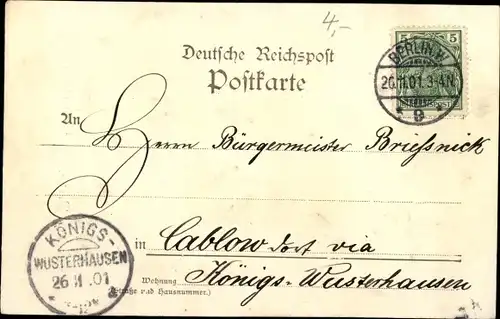 4,-
Deutsche Reichspost
Postkarte
5
BERLIN W.
26.11.01.3-4N.
* 9 *
An Herrn Bürgermeister Briefsnick
KÖNIGS-
WUSTERHAUSEN
26 11 .01
in Cablow dort via
Wohnung Königs-Wusterhausen
(Straße und Hausnummer.)